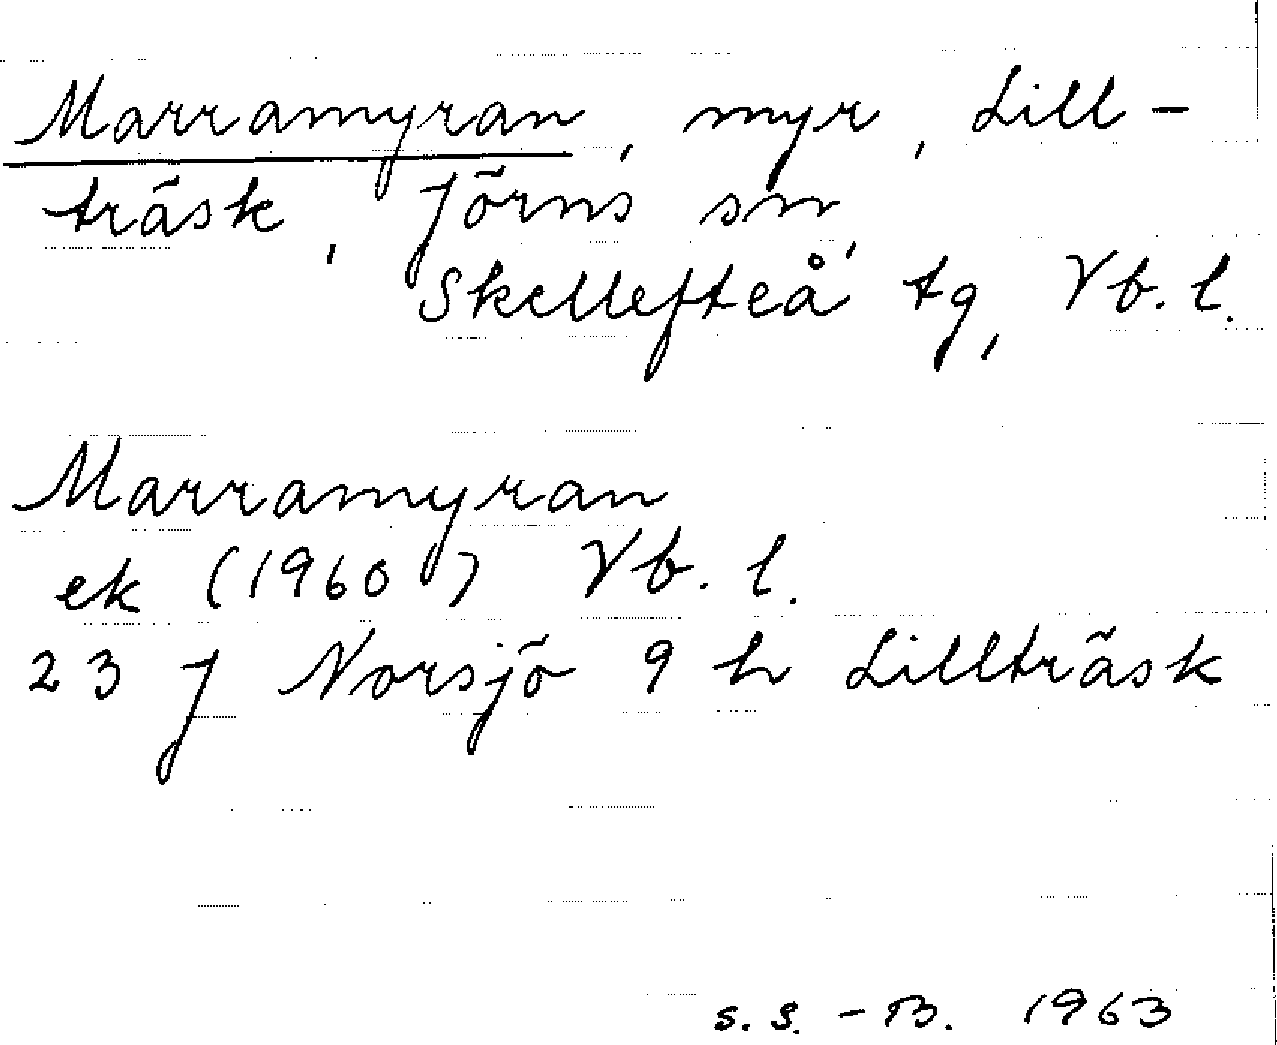 Marramyran, myr, Lill-
träsk, Jörns sn,
Skellefteå tg, Vb. l.
Marramyran
ek (1960) Vb. l.
23 J Norsjö 9 h Lillträsk
S. S. - B. 1963